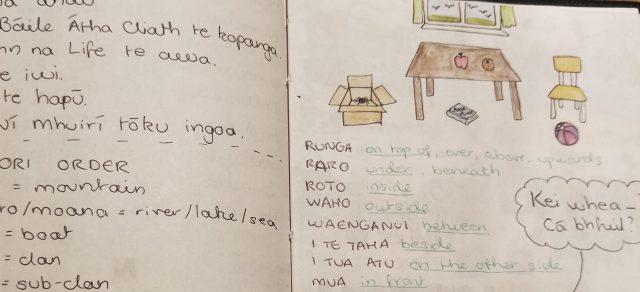 Báile Átha Cliath te kopanga.
na Life te awa.
e iwi.
te hapū.
mhuirí tōku ingoa.
ORI ORDER
= mountain
ro/moana = river/lake/sea
= boat
= clan
= sub-clan
RUNGA on top of, over, above, upwards
RARO under, beneath
ROTO inside
WAHO outside
WAENGANUI between
I TE TAHA beside
I TUA ATU on the other side
MUA in front
Kei whea –
Cá bhfuil?